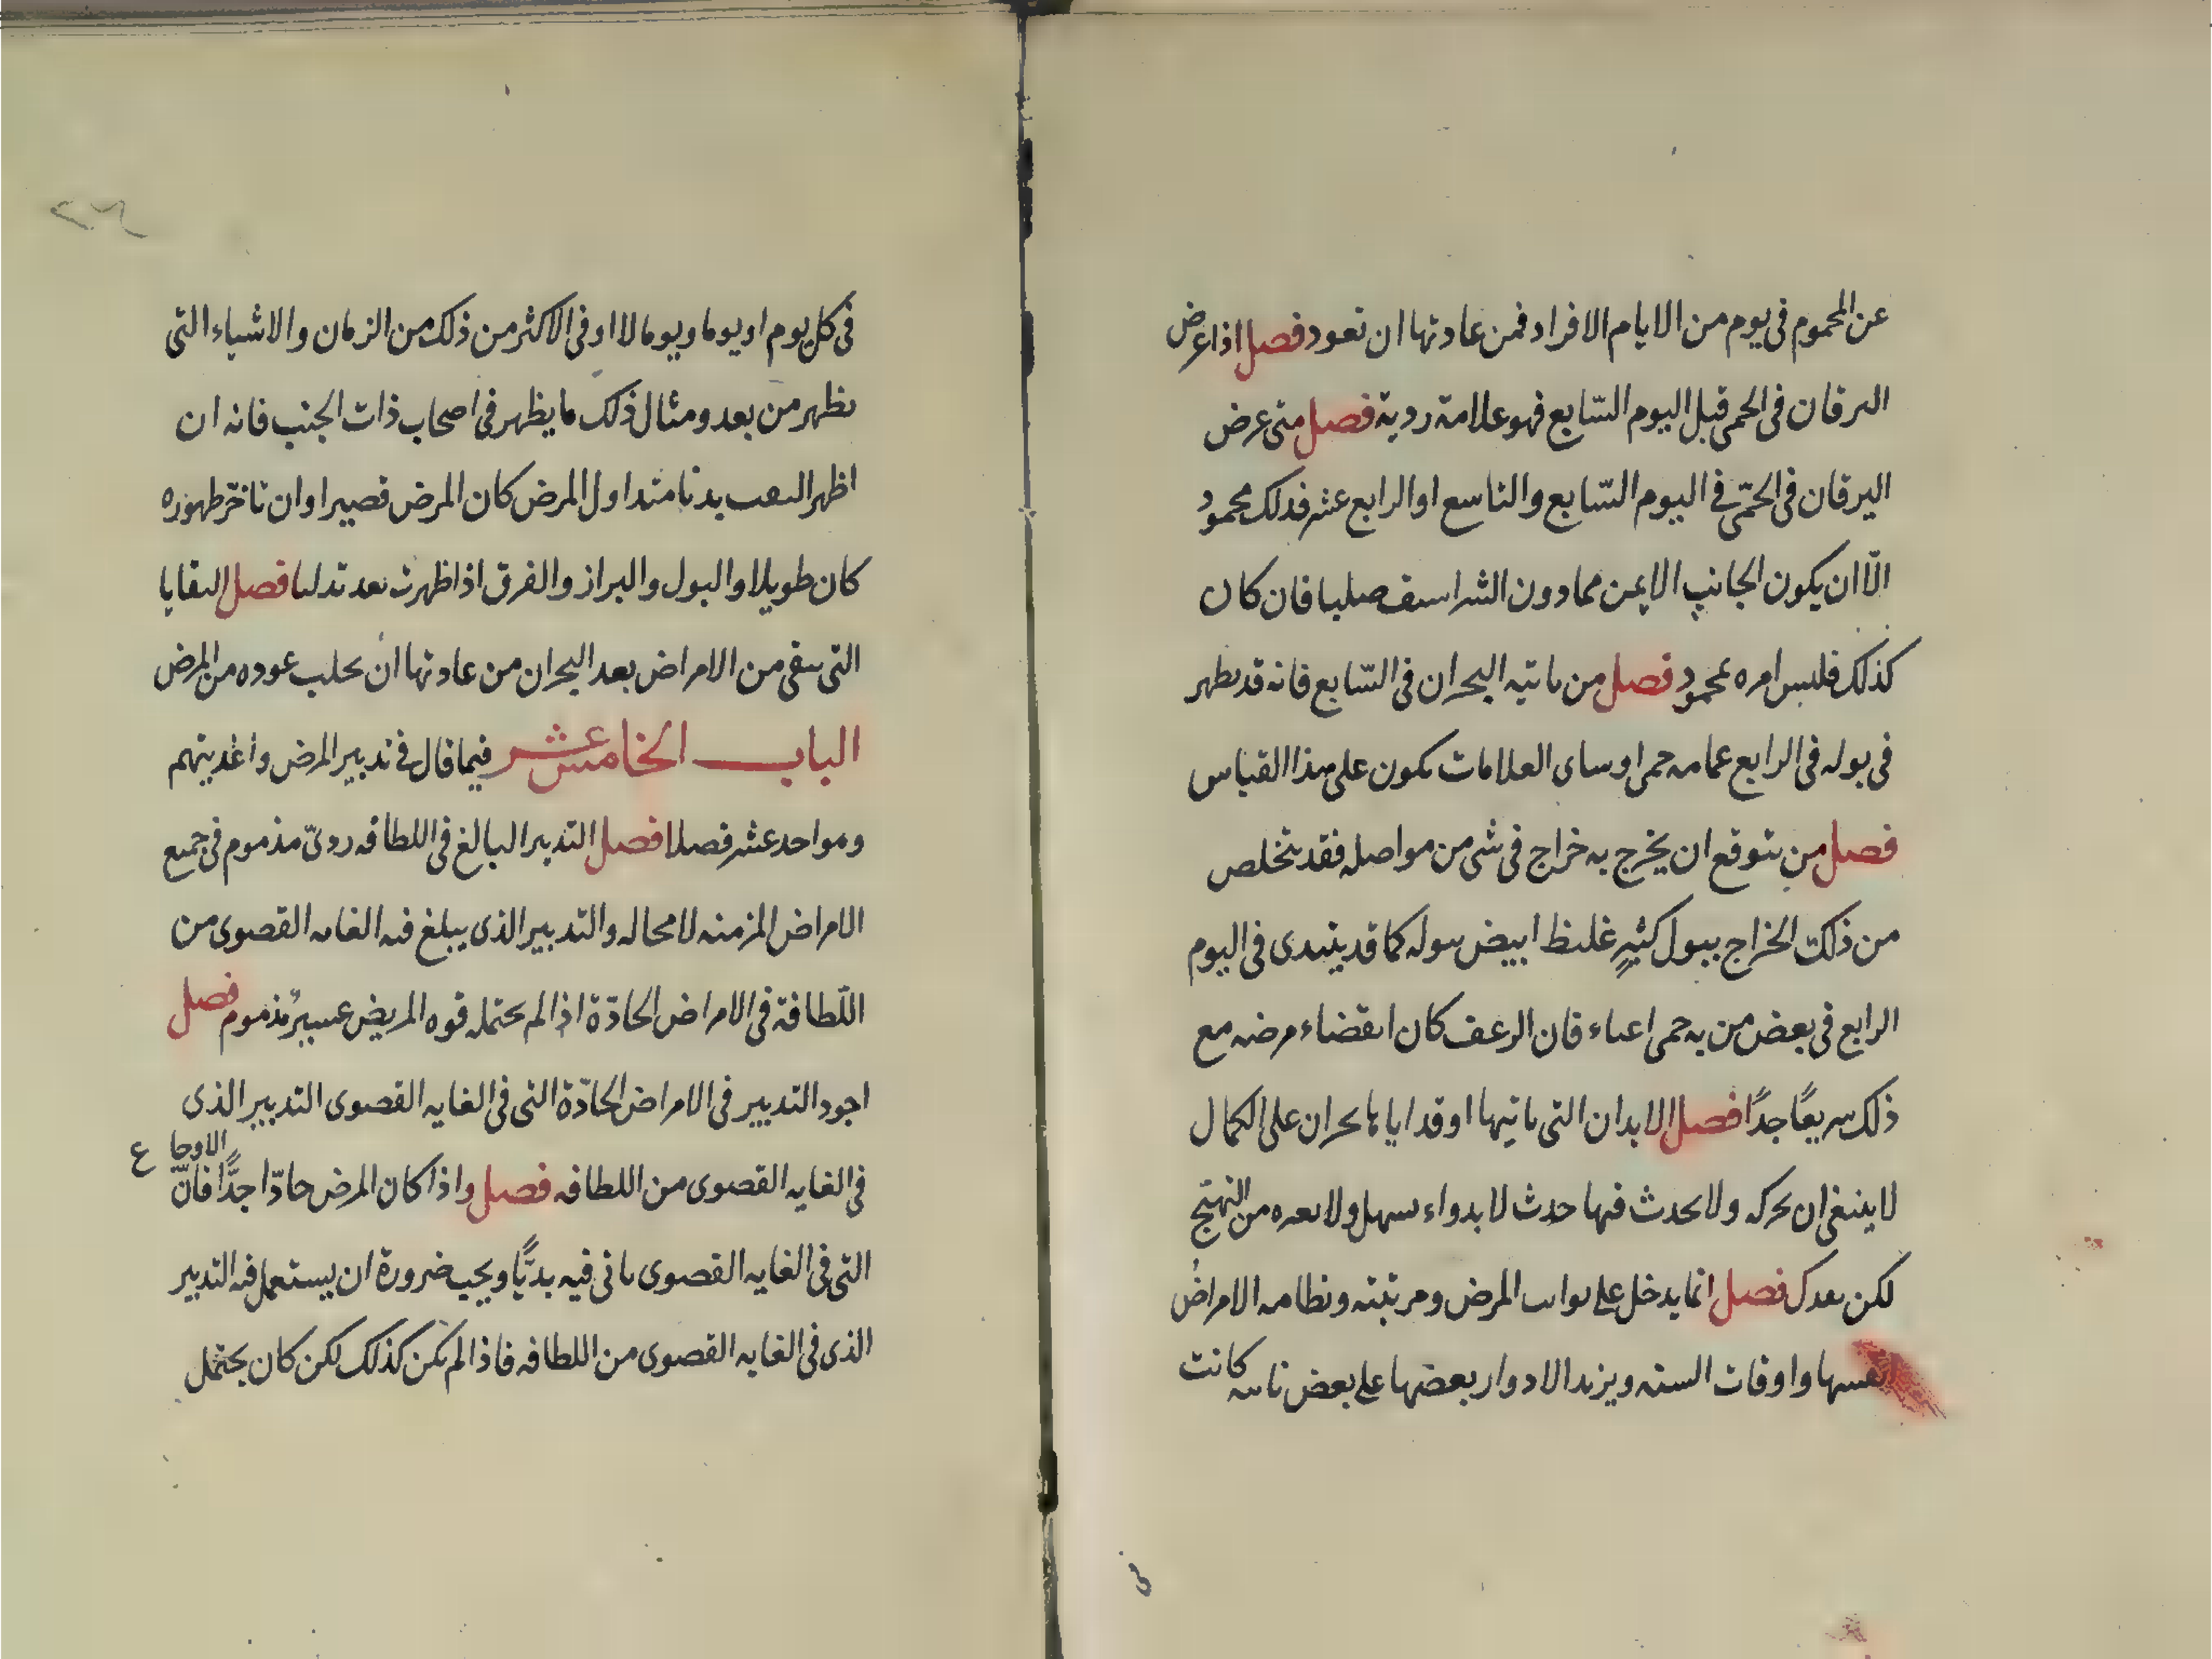 عن المحموم فى يوم من الايام الافراد فمن عادتها ان تعود فصل اذا عرض
اليرقان فى الحمى قبل اليوم السّابع فهو علامة ردية فصل متى عرض
اليرقان فى الحمّى فى اليوم السّابع والتاسع او الرابع عشر فدلك محمود
الّا ان يكون الجانب الايمن ممادون الشراسيف صلبا فان كان
كذلك فليس امره بمحمود فصل من ياتيه البحران فى السّابع فانه قد يظهر
فى بوله فى الرابع غمامه حمرا وساى العلامات تكون على هذا القياس
فصل من يتوقع ان يخرج به خراج فى شى من مواصله فقد يتخلص
من ذلك الخراج ببول كثير غليظ ابيض يبوله كما قد يبتدى فى اليوم
الرابع فى بعض من به حمى اعياء فان الرعف كان انقضاء مرضه مع
ذلك سريعًا جدًا فصل الابدان التى ياتيها او قد اياها بحران على الكمال
لا ينبغى ان يحركه ولا يحدث فيها حدث لا بدواء يسهل ولا بغيره من التهيّج
لكن يعدك فصل انما يدخل على نوايب المرض ومرتبته ونظامه الامراض
انفسها واوقات السنه ويزيد الادوار بعضها على بعض نايبه كانت
فى
فى كل يوم او يوما ويوما لا او فى الاكثر من ذلك من الزمان والاشياء التى
يظهر من بعد ومثال ذلك ما يظهر فى اصحاب ذات الجنب فانه ان
اظهر النفث بدئا منذ اول المرض كان المرض قصيرا وان تاخّر ظهوره
كان طويلا والبول والبراز والفرق اذا ظهرت بعد تدلنا فصل البقايا
التى تبقى من الامراض بعد البحران من عادتها ان تجلب عوده من المرض
الباب الخامس عشر فيما قال فى تدبير المرض واغديتهم
وهو احد عشر فصلا فصل التدبير البالغ فى اللطافه ردىّ مذموم فى جميع
الامراض المزمنه لا محاله والتدبير الذى يبلغ فيه الغايه القصوى من
اللّطافة فى الامراض الحادّة اذا لم تحتمله قوه المريض عسيرٌ مذموم فصل
اجود التدبير فى الامراض الحادّة التى فى الغايه القصوى التدبير الذى
فى الغايه القصوى من اللطافه فصل واذا كان المرض حادّا جدًّا فانّ الاوجاع
التى فى الغايه القصوى ياتى فيه بديًّا ويجب ضرورة ان يستعمل فيه التدبير
الذى فى الغايه القصوى من اللطافه فاذا لم يكن كذلك لكن كان يحتمل